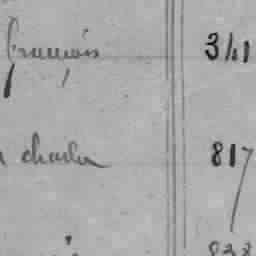 françois 341
charles 817